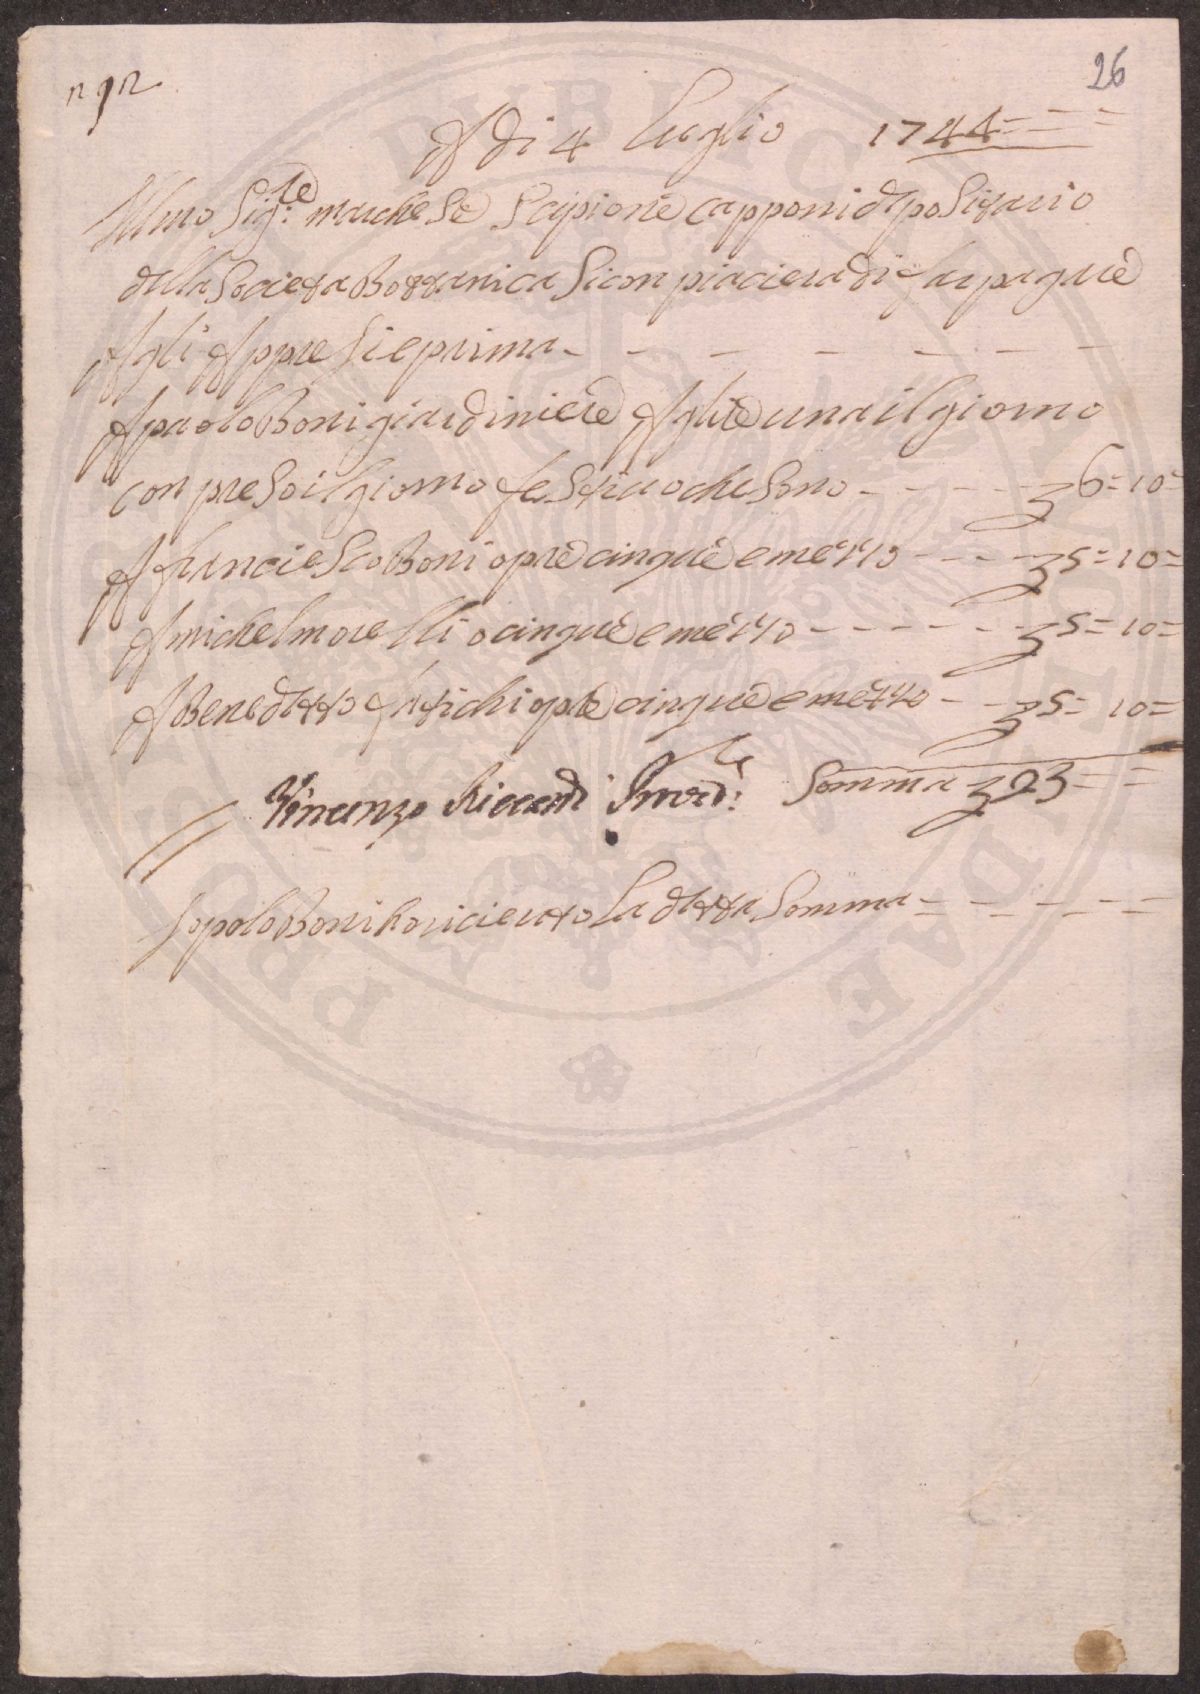 26
A di 4 luglio 1744
Illmo Sig.re marchese Scipione capponi depositario
della Societa Bottanica Si conpiaciera di far pagare
A gli Appresi e prima
A paolo Boni giardiniere A lire una il giorno
conpreso il giorno festiuo che Sono 6=10=
A franciesco Boni opre cinque e mezzo 5=10=
A michel morelli o cinque e mezzo 5=10=
A Benedetto fatichi opre cinque e mezzo 5=10=
Vincenzo Riccardi Somma 23
Io polo Boni ho riceiuto La detta Somma
PUBLICAE